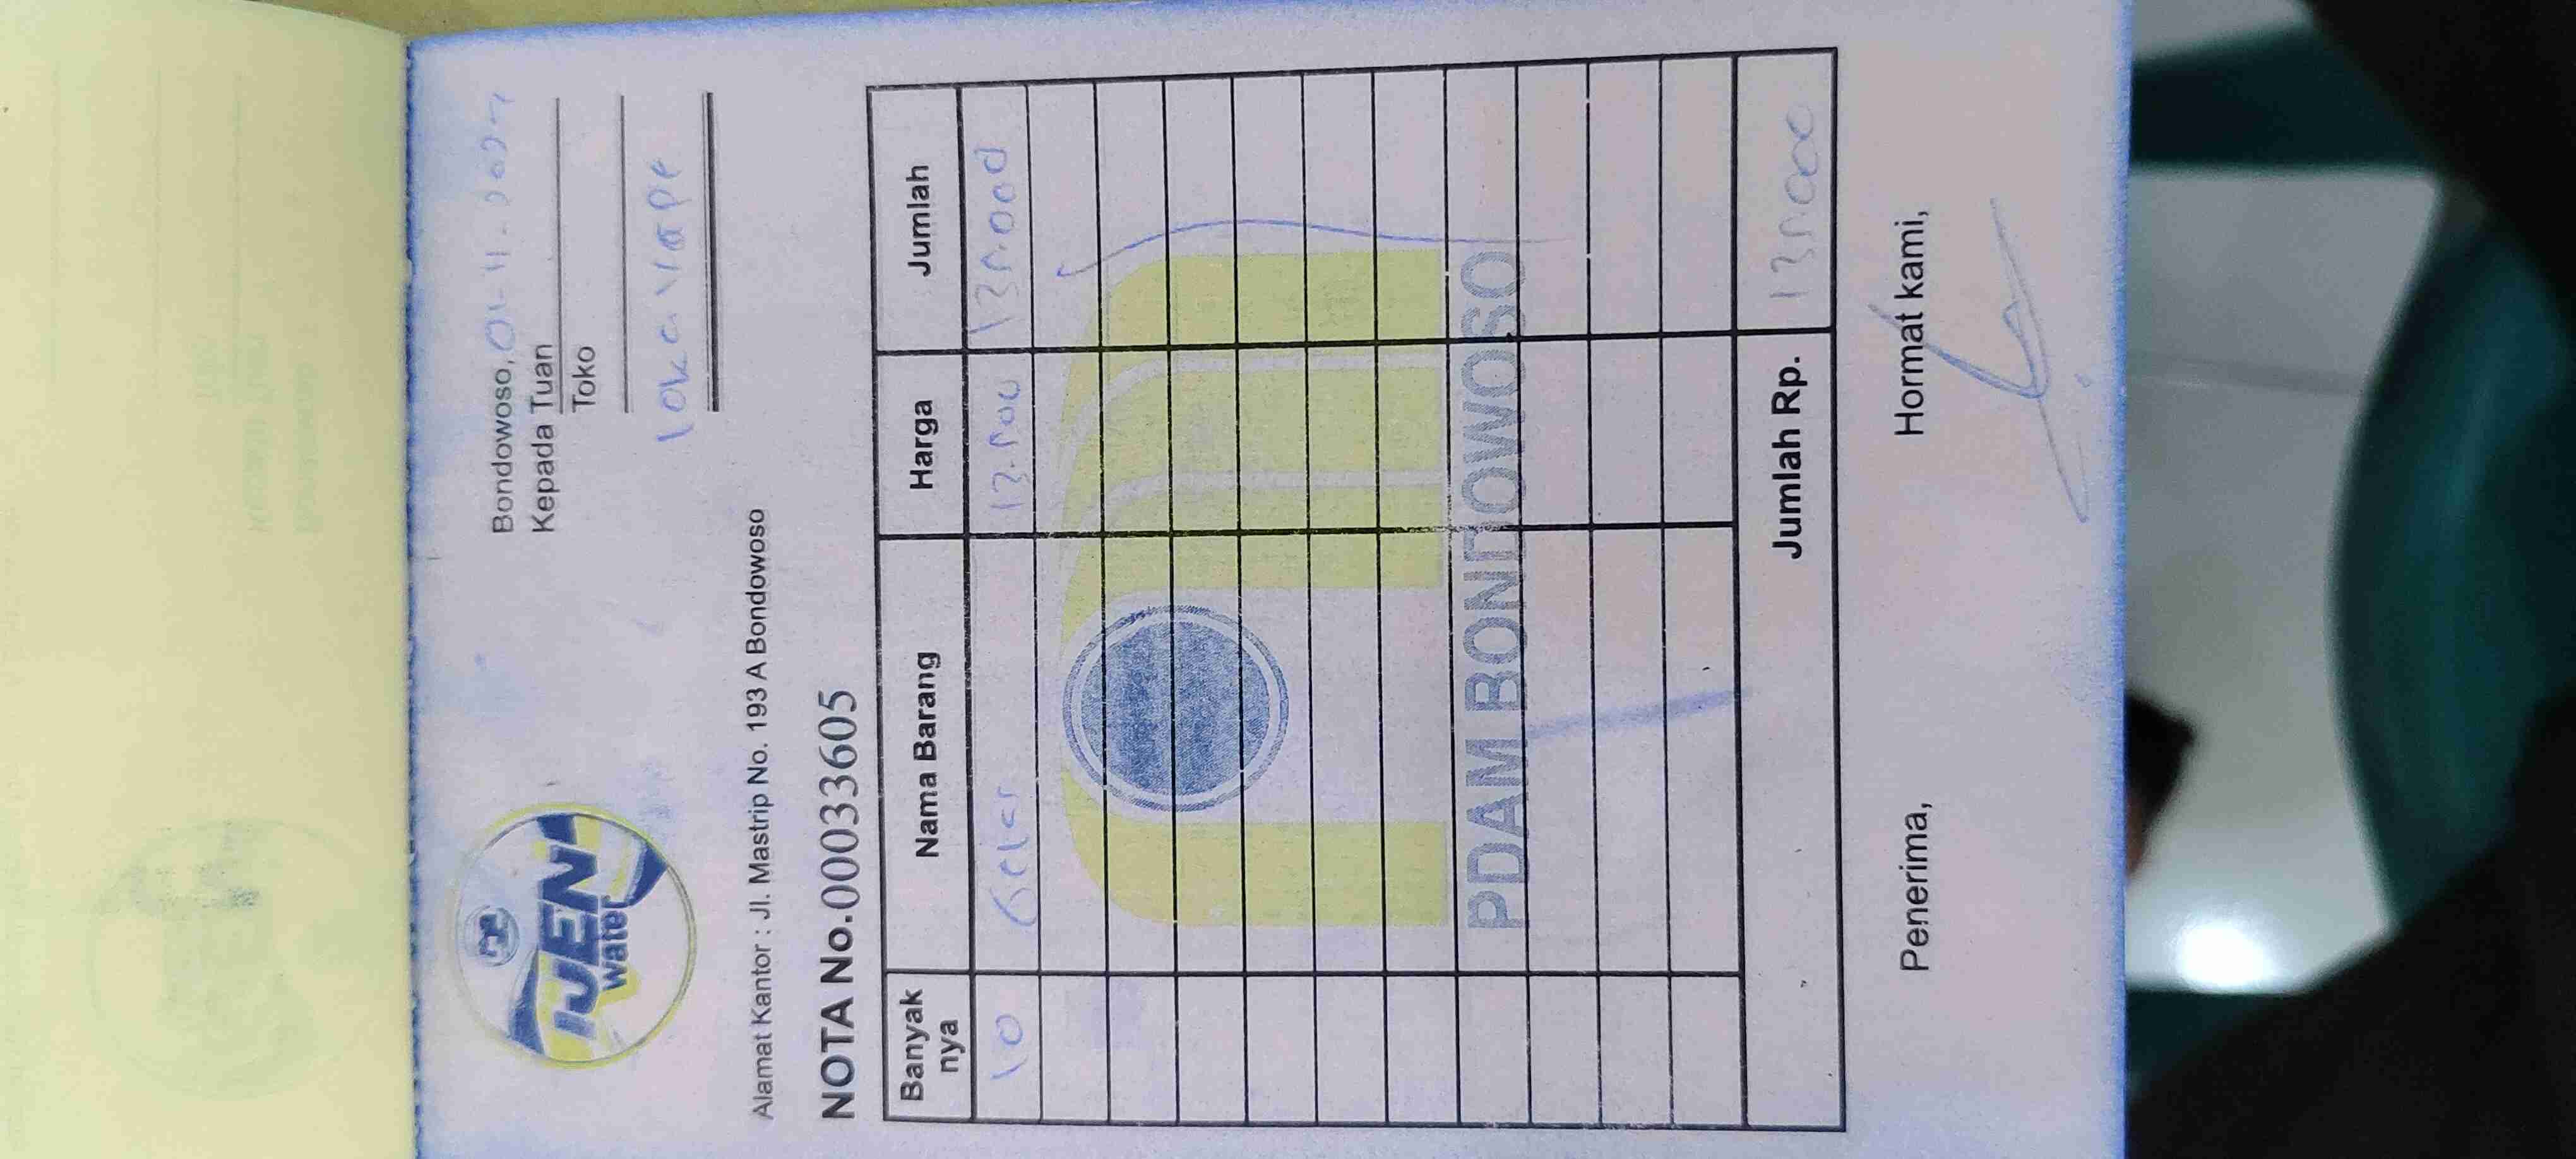 IJEN
Water
Bondowoso, 01-11-2024
Kepada Tuan
Toko
loka vape
Alamat Kantor : Jl. Mastrip No. 193 A Bondowoso
NOTA No.00033605
Banyak nya Nama Barang Harga Jumlah
10 Gelas 13.500 135.000
PDAM BONDOWOSO
Jumlah Rp. 135.000
Penerima, Hormat kami,